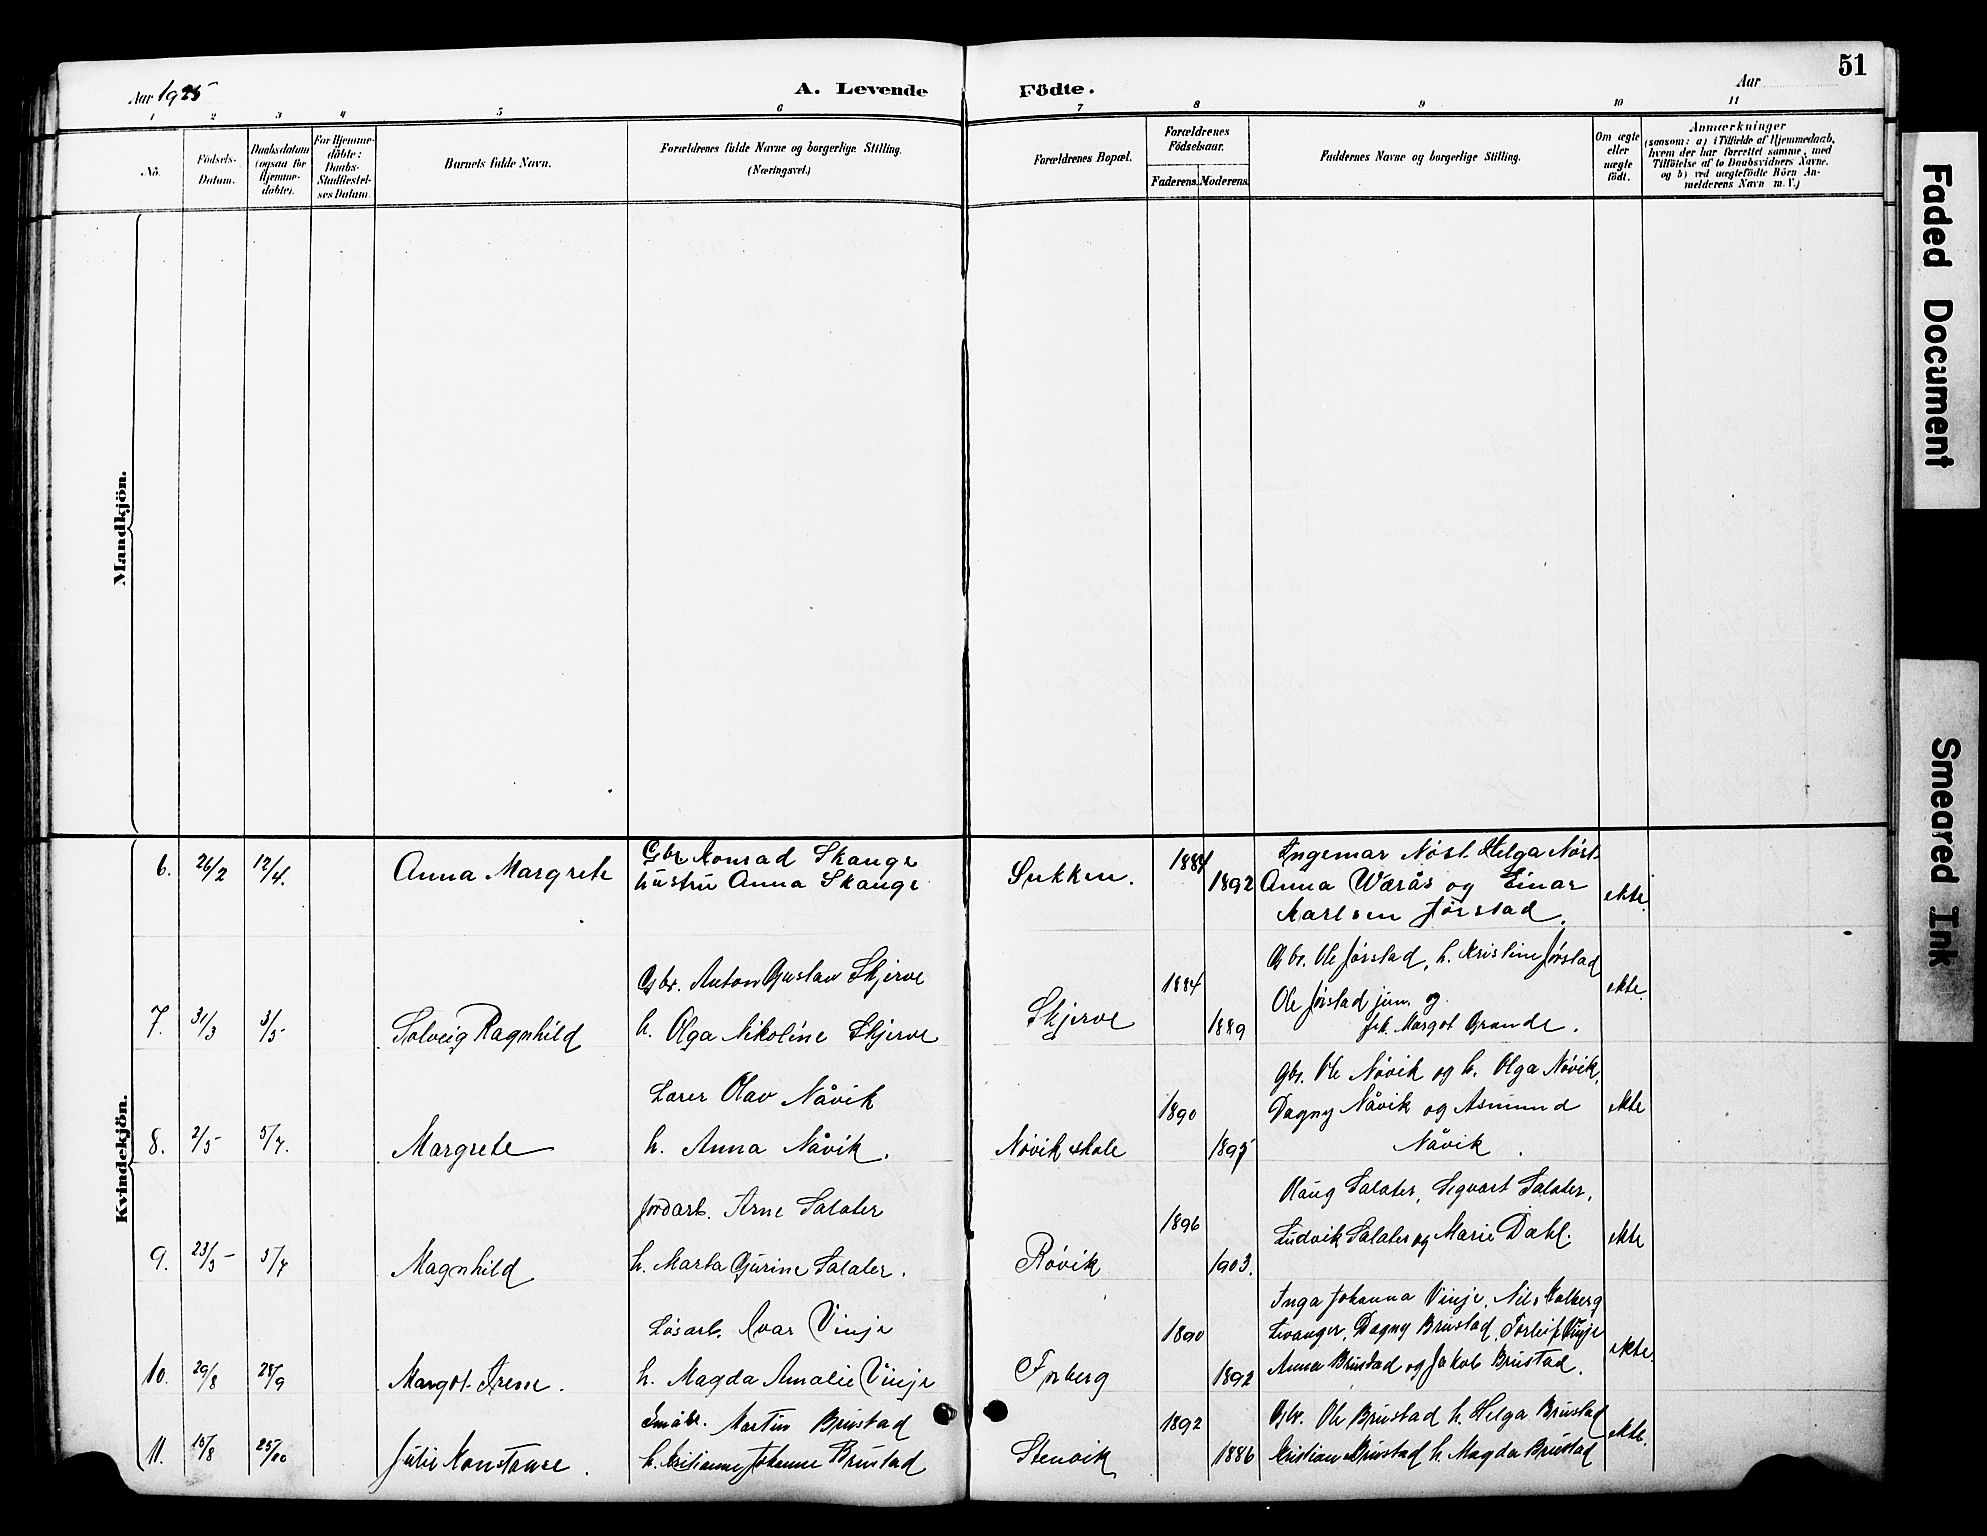 51
Aar 1925
A. Levende Födte.
Aar
1 2 3 4 5 6 7 8 9 10 11
No.
Födsels-Datum.
Daabsdatum (ogsaa for Hjemme-döbte).
For Hjemme-döbte: Daabs-Stadfæstel-ses Datum.
Barnets fulde Navn.
Forældrenes fulde Navne og borgerlige Stilling. (Næringsvei.)
Forældrenes Bopæl.
Forældrenes Födselsaar.
Faderens. Moderens.
Faddernes Navne og borgerlige Stilling.
Om ægte eller uægte födt.
Anmærkninger
(saasom: a) i Tilfælde af Hjemmedaab,
hvem der har forrettet samme, med
Tilföielse af to Daabsvidners Navne.
og b) ved uægtefödte Börn An-
melderens Navn m. V.)
Mandkjön.
Kvindekjön.
6. 26/2 12/4. Anna Margrete
Gbr Konrad Skauge
hustru Anna Skauge
Sukken. 1884 1892
Ingemar Nøst. Helga Nøst.
Anna Wærås og Einar
Karlsen Jørstad.
ekte.
7. 31/3 3/5 Solveig Ragnhild
Gbr. Anton Gustav Skjerve
h. Olga Nikoline Skjerve
Skjerve 1884 1889
Gbr. Ole Jørstad, h. Kristine Jørstad
Ole Jørstad jun. og
frk. Margot Grande.
ekte.
8. 2/5 5/7. Margrete
Lærer Olav Nåvik
h. Anna Nåvik.
Nøvik skole 1890 1895
Gbr. Ole Nøvik og h. Olga Nøvik,
Dagny Nåvik og Asmund
Nåvik.
ekte
9. 23/5 5/7 Magnhild
Jordarb. Arne Salater
h. Marta Gurine Salater.
Røvik 1896 1903.
Olaug Salater, Sigvart Salater,
Ludvik Salater og Marie Dahl.
ekte
10. 29/8 28/9 Margot Irene.
Løsarb. Ivar Vinje
h. Magda Amalie Vinje
Finberg 1890 1892
Inga Johanna Vinje, Nils Valberg
Levanger, Dagny Brustad, Torleif Vinje
Anna Brustad og Jakob Brustad.
ekte.
11. 15/8 25/10 Julie Konstanse.
Småbr. Martin Brustad
h. Kristianne Johanne Brustad
Stenvik 1892 1886
Gbr. Ole Brustad h. Helga Brustad
Kristian Brustad h. Magda Brustad
ekte.
Faded Document
Smeared Ink